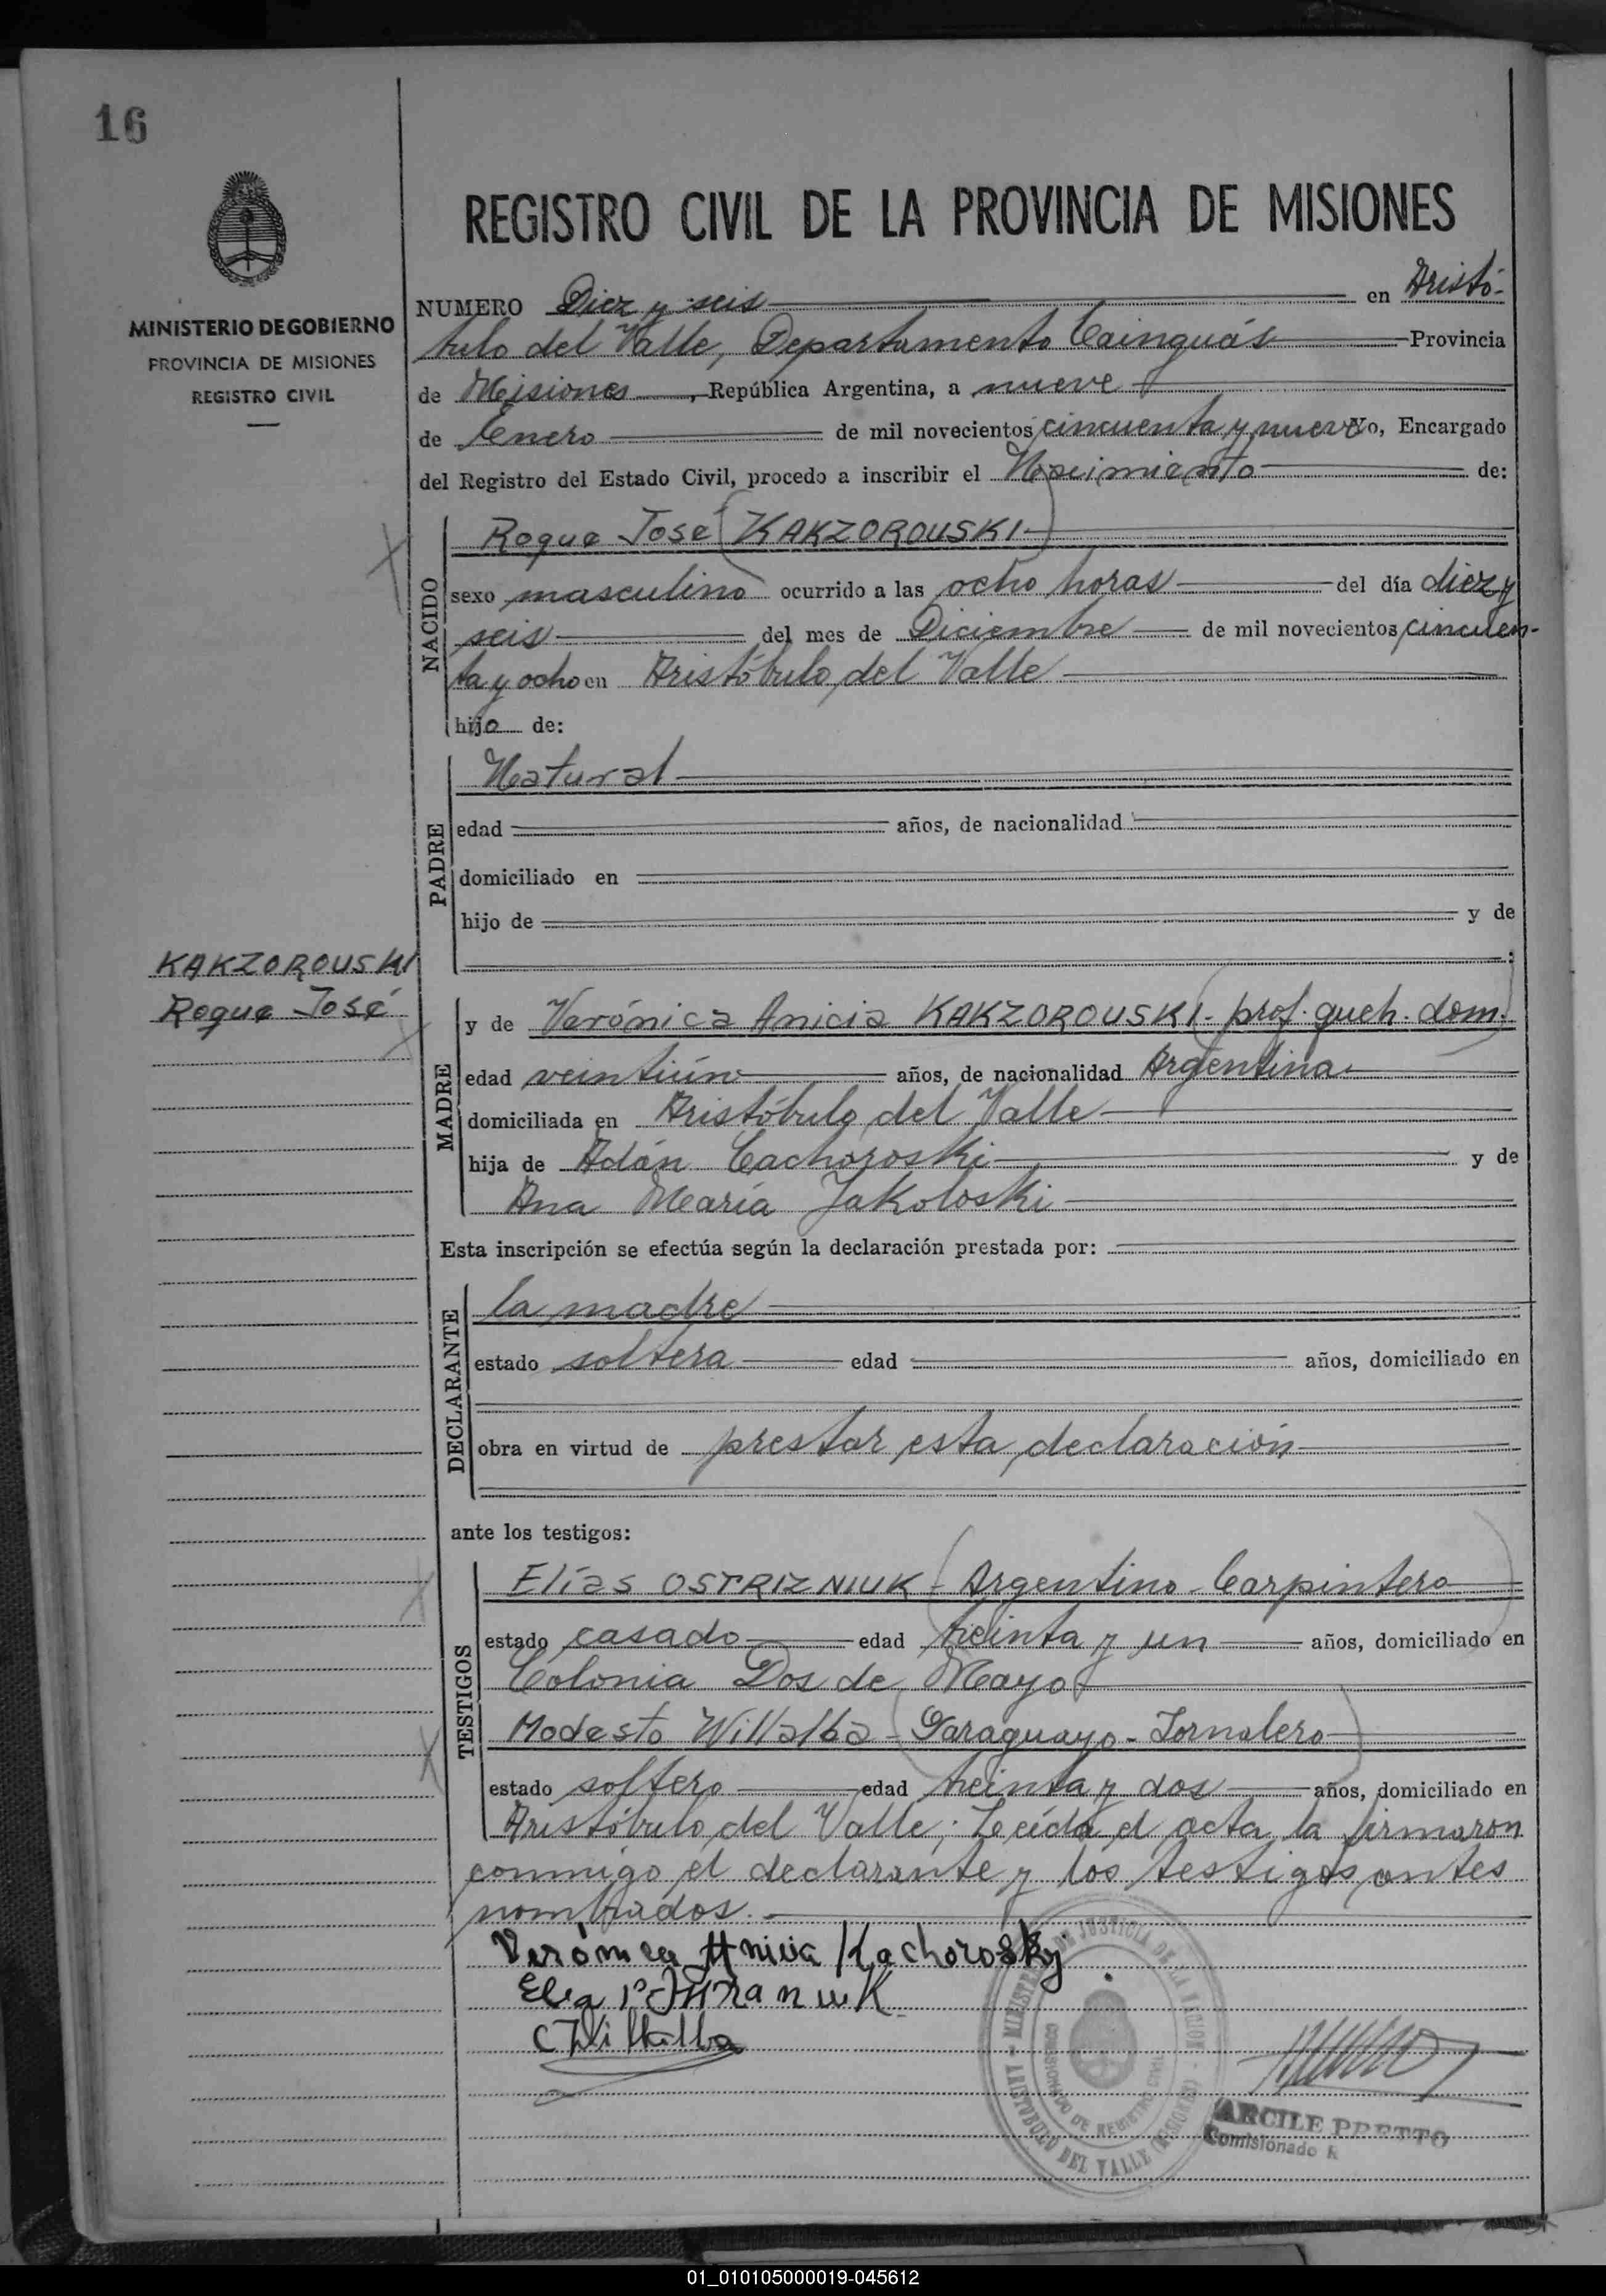 16
MINISTERIO DE GOBIERNO
PROVINCIA DE MISIONES
REGISTRO CIVIL
REGISTRO CIVIL DE LA PROVINCIA DE MISIONES
NUMERO Diez y seis en Aristó-
bulo del Valle, Departamento Cainguás Provincia
de Misiones, República Argentina, a nueve
de Enero de mil novecientos cincuenta y nueve Yo, Encargado
del Registro del Estado Civil, procedo a inscribir el Nacimiento de:
NACIDO
Roque José (KAKZOROUSKI)
sexo masculino ocurrido a las ocho horas del día diez y
seis del mes de Diciembre de mil novecientos cincuen-
ta y ocho en Aristóbulo del Valle
hijo de:
PADRE
Natural
edad años, de nacionalidad
domiciliado en
hijo de y de
KAKZOROUSKI
Roque José
MADRE
y de Verónica Anicia KAKZOROUSKI (- prof. queh. dom.)
edad veintiún años, de nacionalidad Argentina
domiciliada en Aristóbulo del Valle
hija de Adán Cachoroski y de
Ana María Jakoloski
Esta inscripción se efectúa según la declaración prestada por:
DECLARANTE
la madre
estado soltera edad años, domiciliado en
obra en virtud de prestar esta declaración
ante los testigos:
TESTIGOS
Elías OSTRIZNIUK (- Argentino - Carpintero)
estado casado edad treinta y un años, domiciliado en
Colonia Dos de Mayo
Modesto Willalba (- Paraguayo - Jornalero)
estado soltero edad treinta y dos años, domiciliado en
Aristóbulo del Valle; Leída el acta la firmaron
conmigo el declarante y los testigos antes
nombrados.
Verónica Anicia Kachorosky
Willalba
MINISTERIO DE JUSTICIA DE LA NACION
COMISIONADO DE REGISTRO CIVIL
ARISTOBULO DEL VALLE (MISIONES)
ARCILE PRETTO
Comisionado R
01_010105000019-045612